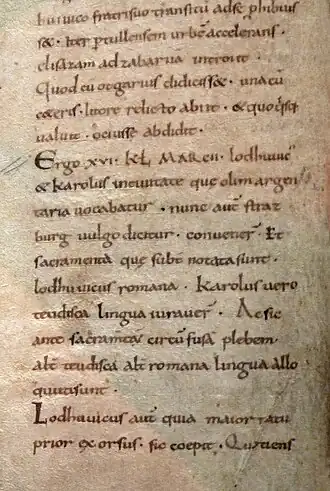 huuico fratri suo transitũ adse ꝑhibuis
sẽt. Iter ꝑ tullensem urbẽ accelerans.
elisazam ad zabarna introiit.
Quod cũ otgarius didicissẽt. una cũ
cẽteris. litore relicto abiit. & quo
ualuit. ocius se abdidit.
Ergo xvi. kł. marcii. lodhuuic
& karolus inciuitate que olim argen
taria uocabatur. nunc autẽ straz
burg uulgo dicitur. conuener̃. Et
sacramenta que subt̃ notata sunt.
lodhuuicus romana. karolus uero
teudisca lingua iurauer̃. Ac sic
ante sacramtã circũfusã plebem.
alt̃ teudisca alt̃ romana lingua allo
quuti sunt.
Lodhuuicus autẽ quia maior natu
prior exorsus. sic coepit. Quotiens